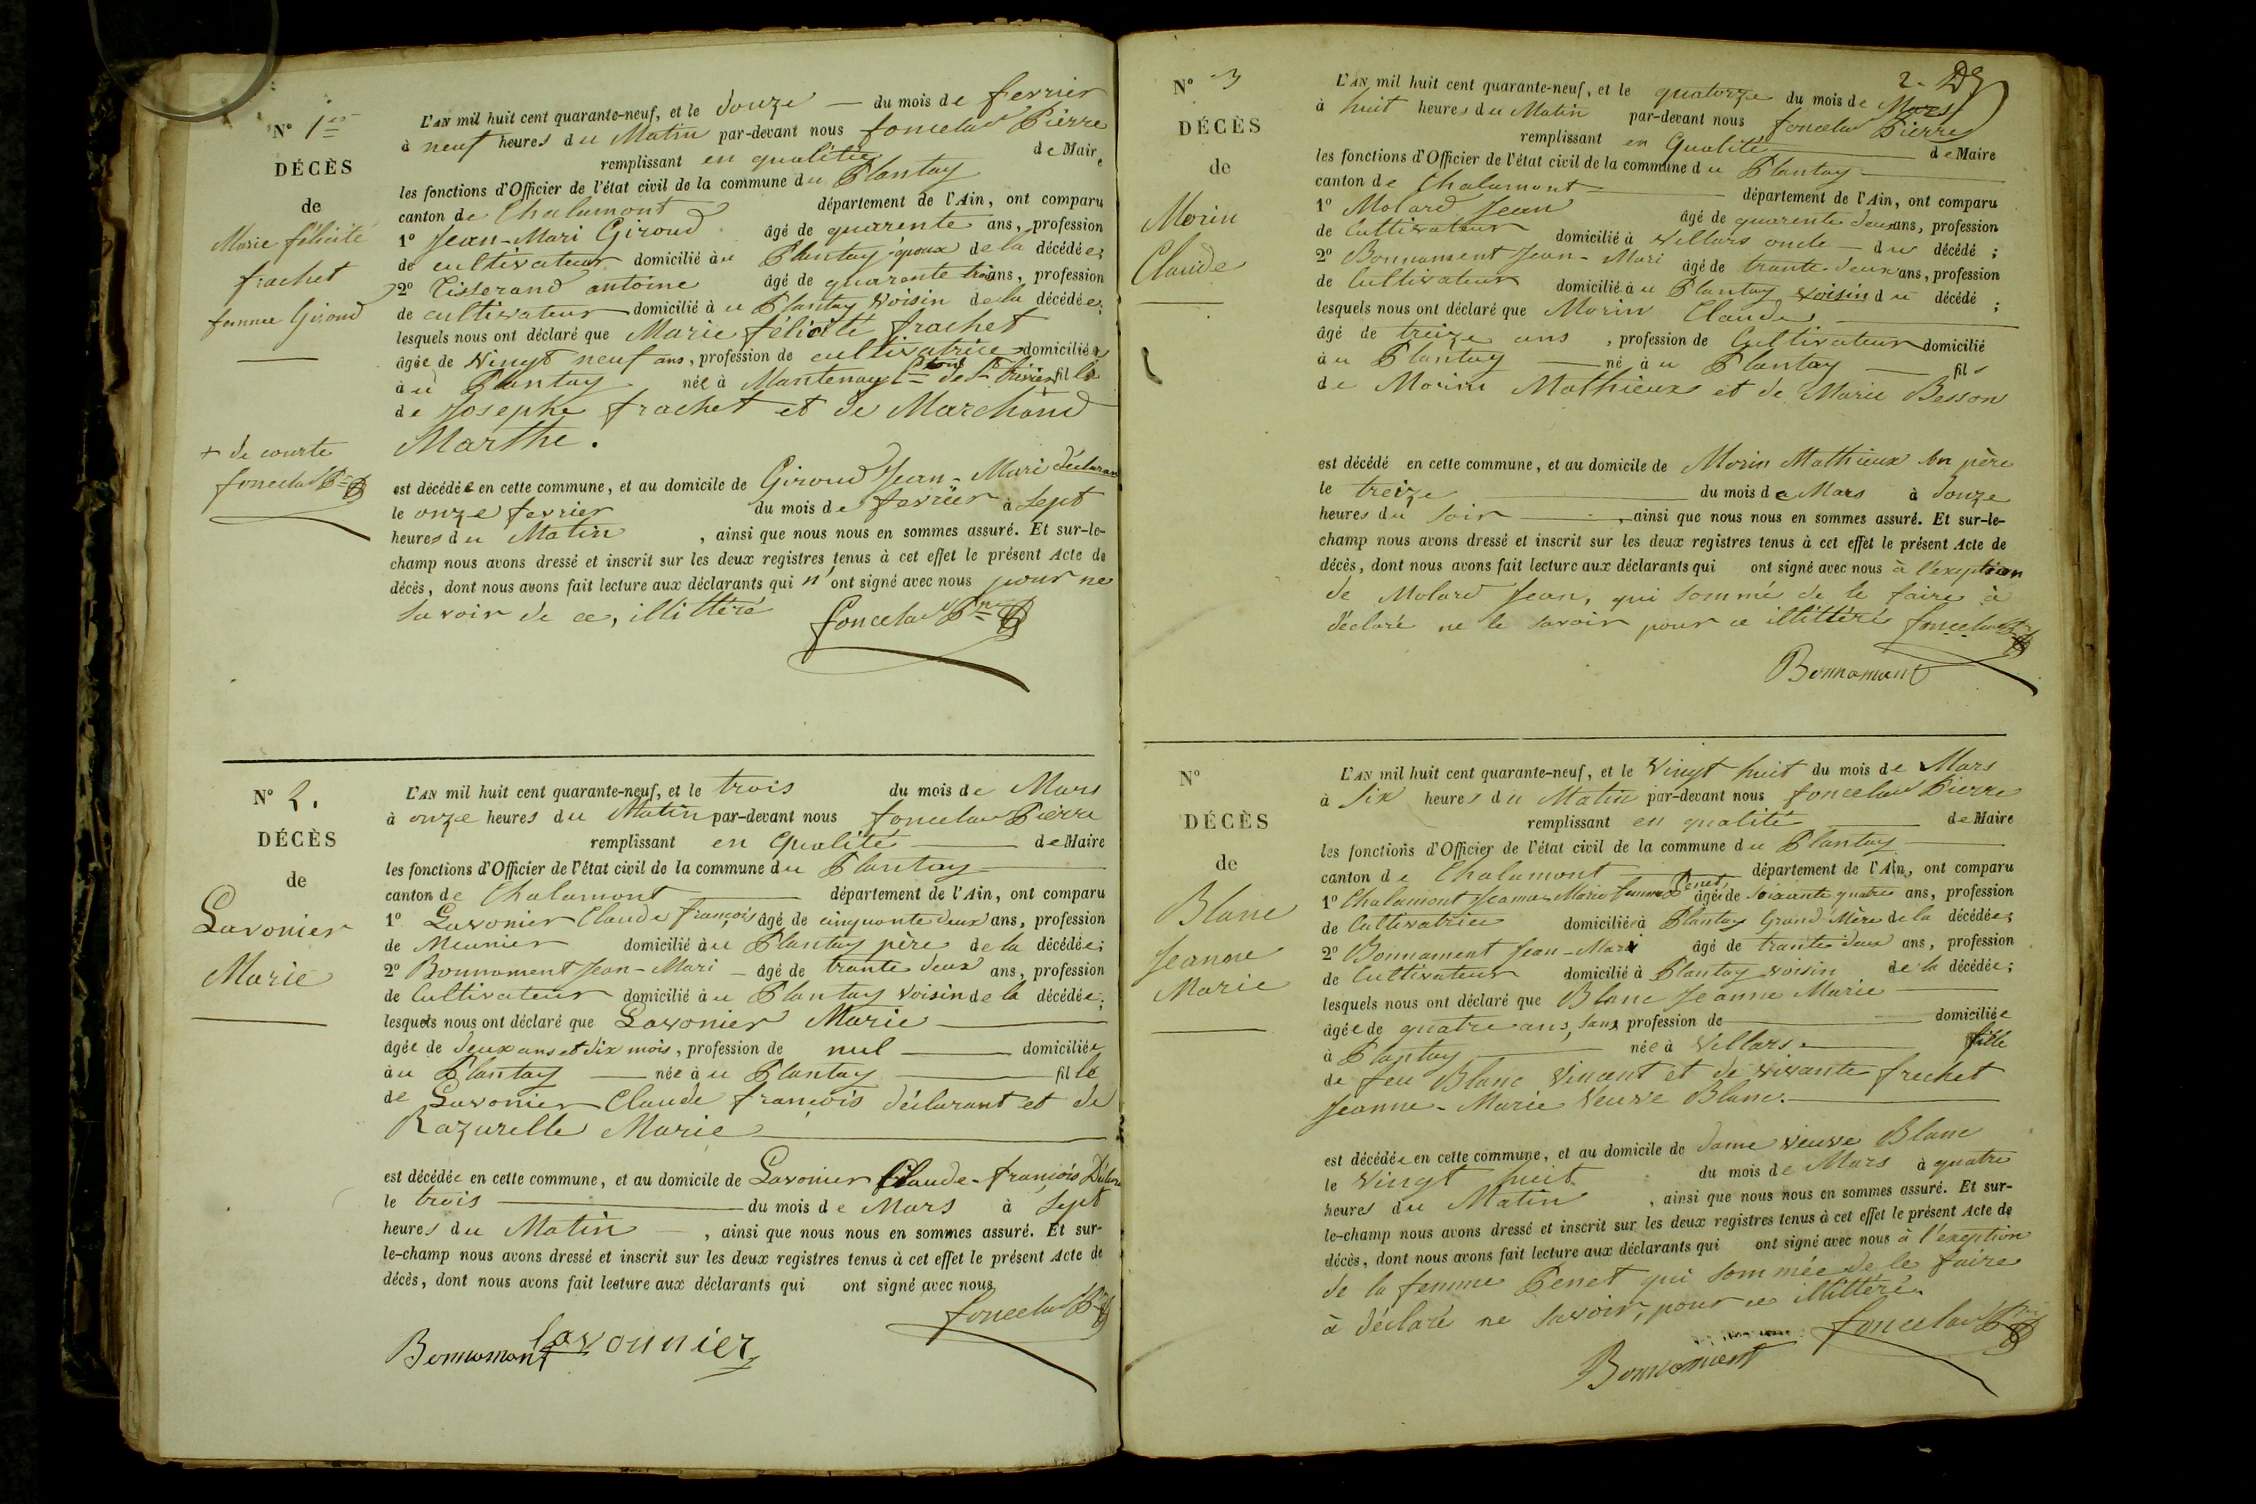 N° 1er
DÉCÈS
de
Marie félicité
frachet
femme Giroud
+ de courte
L'AN mil huit cent quarante-neuf, et le douze — du mois de fevrier
à neuf heures du Matin par-devant nous foncelas Pierre
remplissant en qualitée de Maire
les fonctions d'Officier de l'état civil de la commune du Plantay
canton de Chalamont département de l'Ain, ont comparu
1° Jean-Mari Giroud âgé de quarente ans, profession
de cultivateur domicilié au Plantay époux de la décédée;
2° Tisserand antoine âgé de quarente trois ans, profession
de cultivateur domicilié au Plantay Voisin de la décédée;
lesquels nous ont déclaré que Marie félicité frachet
âgée de Vingt neuf ans, profession de cultivatrice domiciliée
au Plantay née à Mantenay Cton de St Trivier fille
de Josephe frachet et de Marchand
Marthe.
est décédée en cette commune, et au domicile de Giroud Jean-Mari déclarant
le onze fevrier du mois de fevrier à Sept
heures du Matin, ainsi que nous nous en sommes assuré. Et sur-le-
champ nous avons dressé et inscrit sur les deux registres tenus à cet effet le présent Acte de
décès, dont nous avons fait lecture aux déclarants qui n'ont signé avec nous pour ne
savoir de ce, illittéré
foncelas Pre
N° 2.
DÉCÈS
de
Lavonier
Marie
L'AN mil huit cent quarante-neuf, et le trois du mois de Mars
à onze heures du Matin par-devant nous foncelas Pierre
remplissant en Qualité — de Maire
les fonctions d'Officier de l'état civil de la commune du Plantay
canton de Chalamont département de l'Ain, ont comparu
1° Lavonier Claude françois âgé de cinquante deux ans, profession
de Meunier domicilié au Plantay père de la décédée;
2° Bonnament Jean-Mari — âgé de trante deux ans, profession
de Cultivateur domicilié au Plantay Voisin de la décédée;
lesquels nous ont déclaré que Lavonier Marie
âgée de deux ans et dix mois, profession de nul — domiciliée
au Plantay — née au Plantay — fille
de Lavonier Claude françois déclarant et de
Razurelle Marie
est décédée en cette commune, et au domicile de Lavonier Claude-françois
le trois — du mois de Mars à Sept
heures du Matin —, ainsi que nous nous en sommes assuré. Et sur-
le-champ nous avons dressé et inscrit sur les deux registres tenus à cet effet le présent Acte de
décès, dont nous avons fait lecture aux déclarants qui ont signé avec nous
foncelas Pre
Bonnamont Lavounier
2-
N° 3
DÉCÈS
de
Morin
Claude
L'AN mil huit cent quarante-neuf, et le quatorze du mois de Mars
à huit heures du Matin par-devant nous foncelas Pierre
remplissant en Qualité — de Maire
les fonctions d'Officier de l'état civil de la commune du Plantay —
canton de Chalamont — département de l'Ain, ont comparu
1° Molard Jean âgé de quarente deux ans, profession
de Cultivateur domicilié à Villars oncle — du décédé;
2° Bonnament Jean-Mari âgé de trante deux ans, profession
de Cultivateur domicilié au Plantay voisin du décédé;
lesquels nous ont déclaré que Morin Claude
âgé de treize ans, profession de Cultivateur domicilié
au Plantay — né au Plantay — fils
de Morin Mathieux et de Marie Besson
est décédé en cette commune, et au domicile de Morin Mathieux son père
le treize — du mois de Mars à douze
heures du soir —, ainsi que nous nous en sommes assuré. Et sur-le-
champ nous avons dressé et inscrit sur les deux registres tenus à cet effet le présent Acte de
décès, dont nous avons fait lecture aux déclarants qui ont signé avec nous à l'exeption
de Molard Jean, qui sommé de le faire à
déclaré ne le savoir pour ce illittéré foncelas Pre
Bonnamont
N°
DÉCÈS
de
Blanc
Jeanne
Marie
L'AN mil huit cent quarante-neuf, et le Vingt huit du mois de Mars
à Six heures du Matin par-devant nous foncelas Pierre
remplissant en qualité — de Maire
les fonctions d'Officier de l'état civil de la commune du Plantay
canton de Chalamont — département de l'Ain, ont comparu
1° Chalamont Jeanne-Marie femme Penet âgée de Soixante quatre ans, profession
de Cultivatrice domiciliée à Plantay Grand Mère de la décédée;
2° Bonnament Jean-Mari âgé de trante deux ans, profession
de Cultivateur domicilié à Plantay voisin de la décédée;
lesquels nous ont déclaré que Blanc Jeanne Marie —
âgée de quatre ans, sans profession de — domiciliée
à Plantay — née à Villars — fille
de feu Blanc Vincent et de vivante frechet
Jeanne-Marie Veuve Blanc.
est décédée en cette commune, et au domicile de dame veuve Blanc
le Vingt huit du mois de Mars à quatre
heures du Matin, ainsi que nous nous en sommes assuré. Et sur-
le-champ nous avons dressé et inscrit sur les deux registres tenus à cet effet le présent Acte de
décès, dont nous avons fait lecture aux déclarants qui ont signé avec nous à l'exeption
de la femme Penet qui sommée de le faire
à déclaré ne savoir, pour ce illittéré.
foncelas Pre
Bonnament